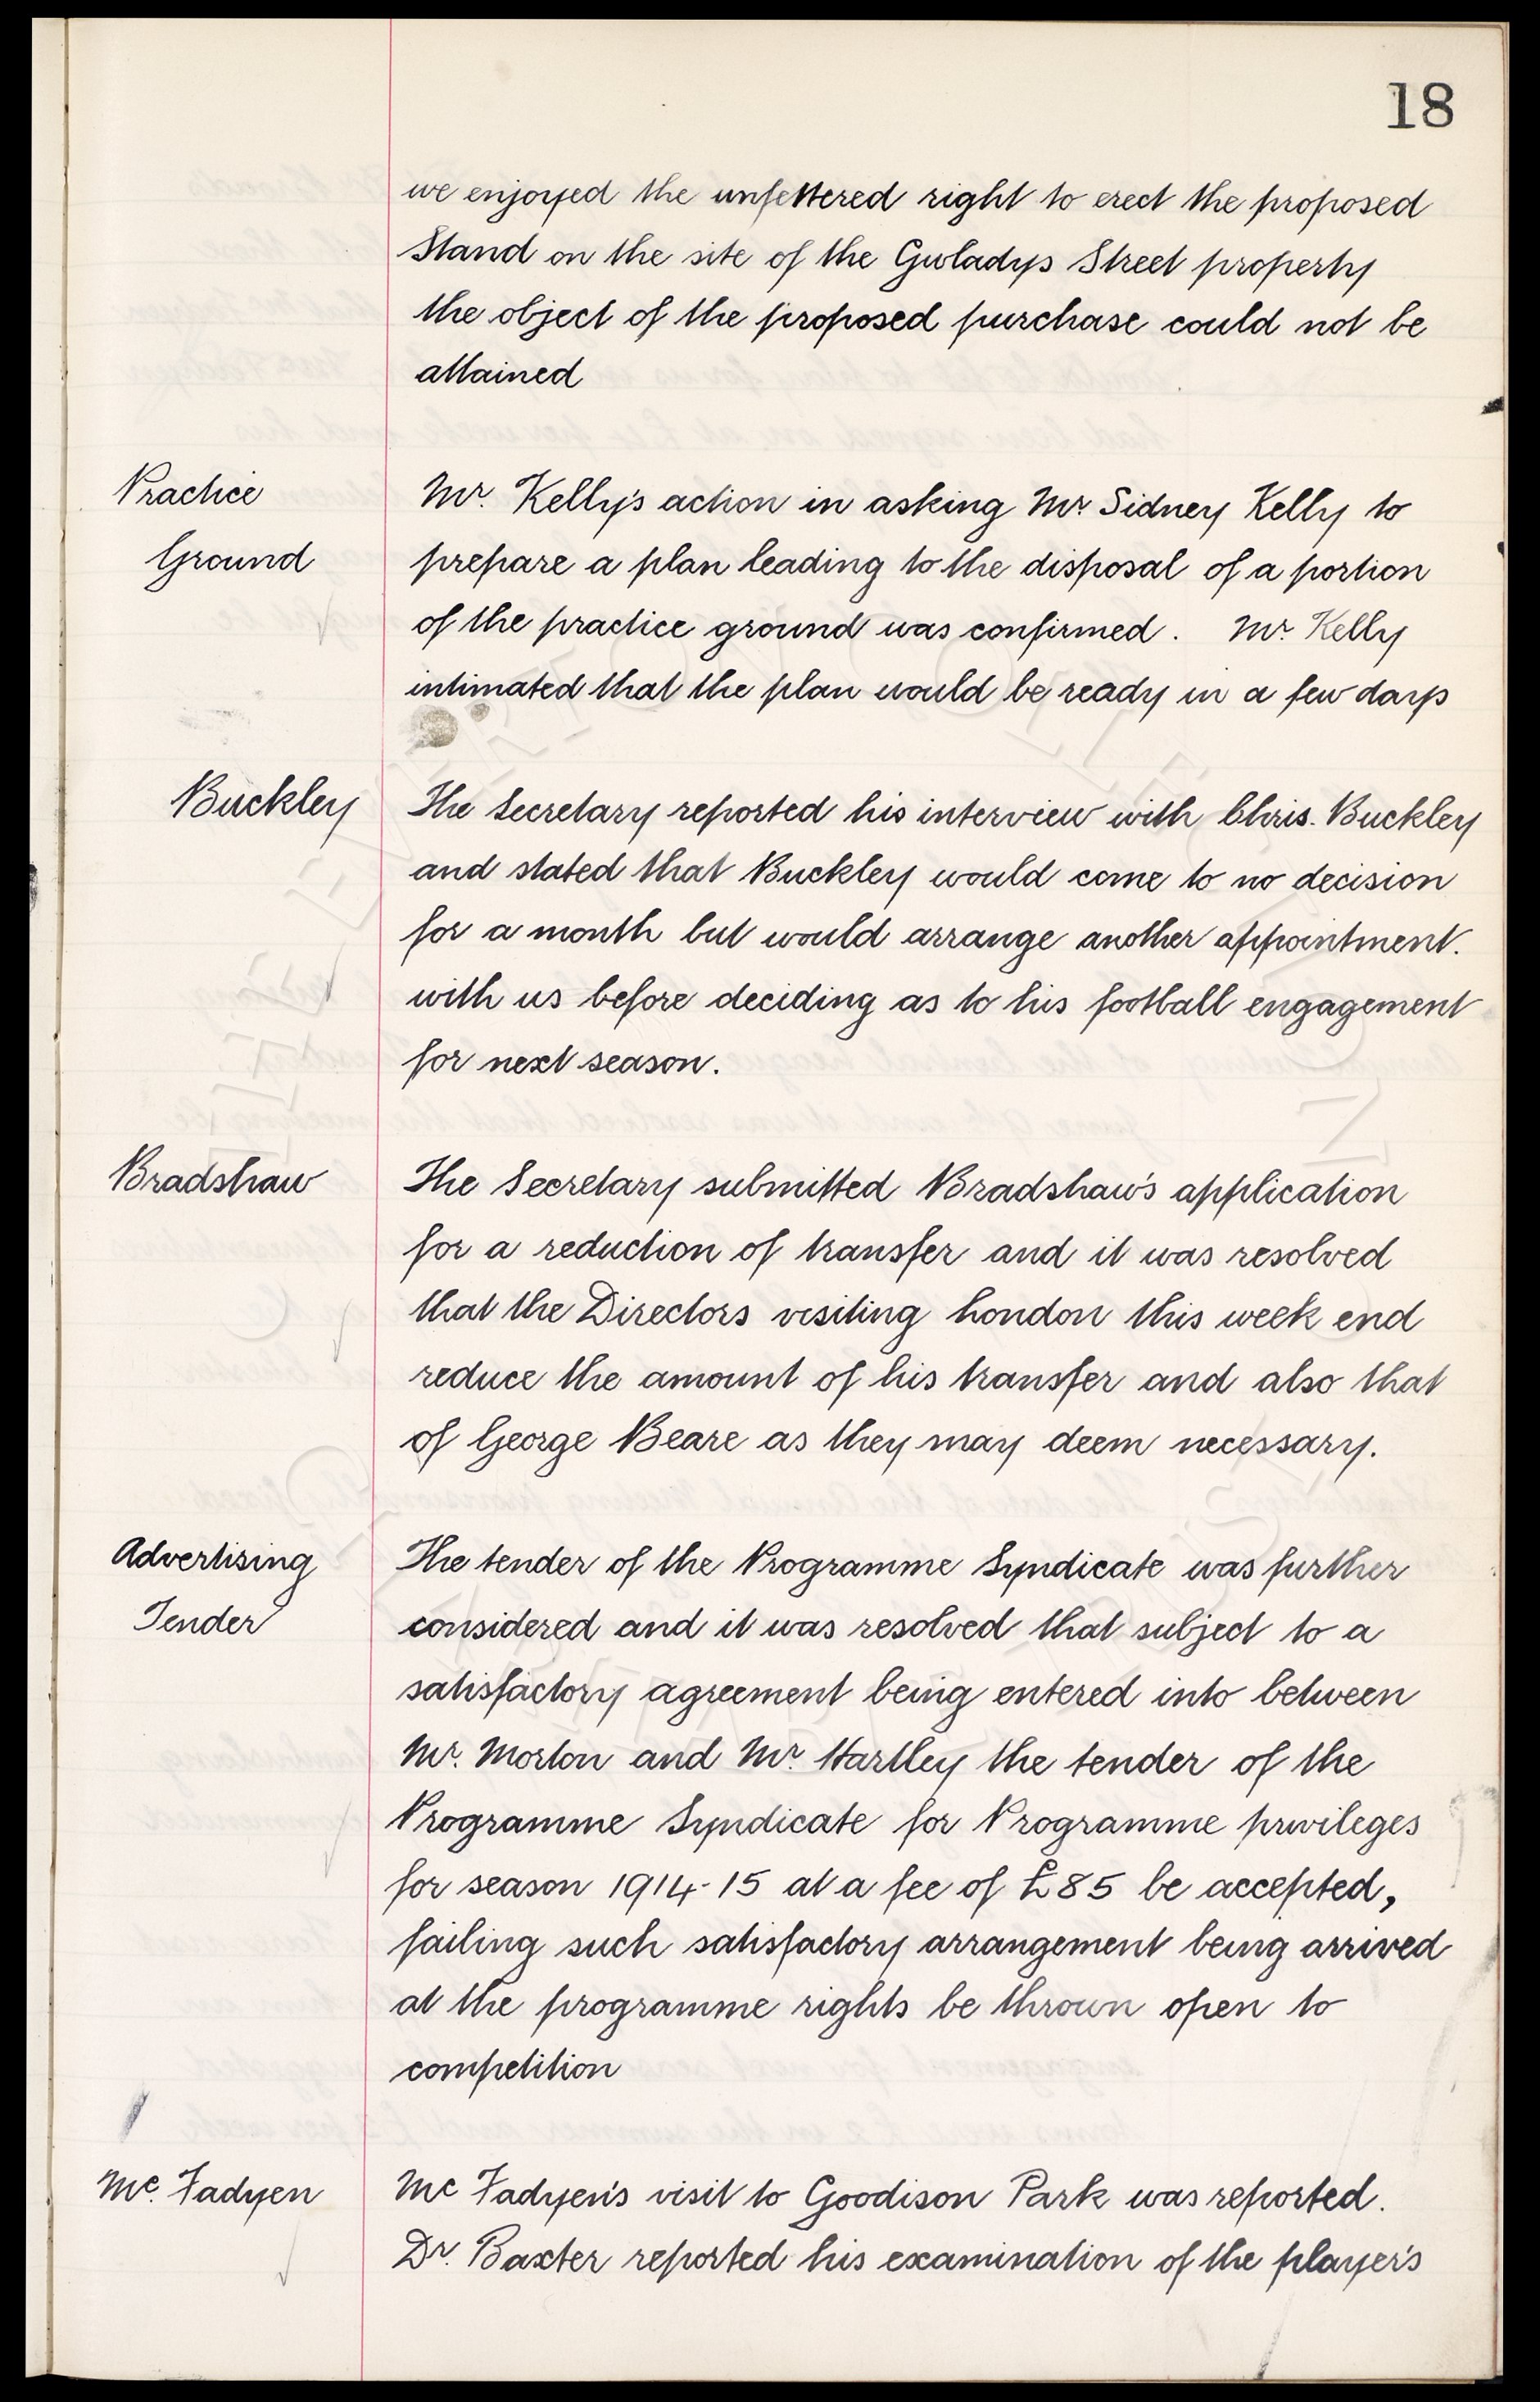 18
we enjoyed the unfettered right to erect the proposed
Stand on the site of the Gwladys Street property
the object of the proposed purchase could not be
attained
Practice
Ground
Mr. Kelly's action in asking Mr. Sidney Kelly to
prepare a plan leading to the disposal of a portion
of the practice ground was confirmed. Mr. Kelly
intimated that the plan would be ready in a few days
Buckley
The Secretary reported his interview with Chris. Buckley
and stated that Buckley would come to no decision
for a month but would arrange another appointment.
with us before deciding as to his football engagement
for next season.
Bradshaw
The Secretary submitted Bradshaw's application
for a reduction of transfer and it was resolved
that the Directors visiting London this week end
reduce the amount of his transfer and also that
of George Beare as they may deem necessary.
Advertising
Tender
The tender of the Programme Syndicate was further
considered and it was resolved that subject to a
satisfactory agreement being entered into between
Mr. Morton and Mr. Hartley the tender of the
Programme Syndicate for Programme privileges
for season 1914-15 at a fee of £85 be accepted,
failing such satisfactory arrangement being arrived
at the programme rights be thrown open to
competition
Mc. Fadyen
Mc Fadyen's visit to Goodison Park was reported.
Dr. Baxter reported his examination of the player's